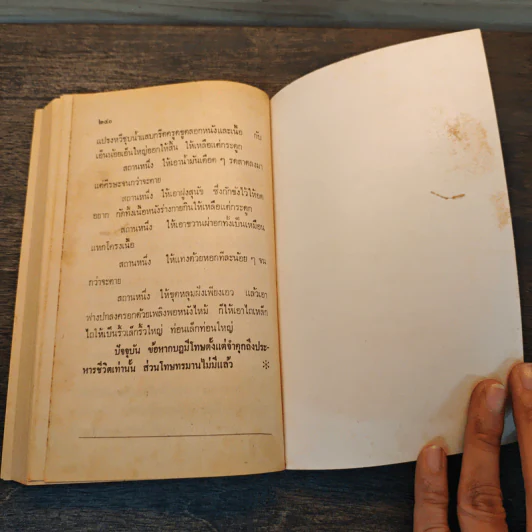 ๒๔๐
แปรงหวีชุบน้ำแสบกรีดครูดขูดลอกหนังและเนื้อ กับ
เอ็นน้อยเอ็นใหญ่ออกให้สิ้น ให้เหลือแต่กระดูก
สถานหนึ่ง ให้เอาน้ำมันเดือด ๆ รดสาดลงมา
แต่ศีรษะจนกว่าจะตาย
สถานหนึ่ง ให้เอาฝูงสุนัข ซึ่งกักขังไว้ให้อด
อยาก กัดทึ้งเนื้อหนังร่างกายกินให้เหลือแต่กระดูก
สถานหนึ่ง ให้เอาขวานผ่าอกทั้งเป็นเหมือน
แหกโครงเนื้อ
สถานหนึ่ง ให้แทงด้วยหอกทีละน้อย ๆ จน
กว่าจะตาย
สถานหนึ่ง ให้ขุดหลุมฝังเพียงเอว แล้วเอา
ฟางปกลงครอกด้วยเพลิงพอหนังไหม้ ก็ให้เอาไถเหล็ก
ไถให้เป็นริ้วเล็กริ้วใหญ่ ท่อนเล็กท่อนใหญ่
ปัจจุบัน ข้อหากบฏมีโทษตั้งแต่จำคุกถึงประ-
หารชีวิตเท่านั้น ส่วนโทษทรมานไม่มีแล้ว